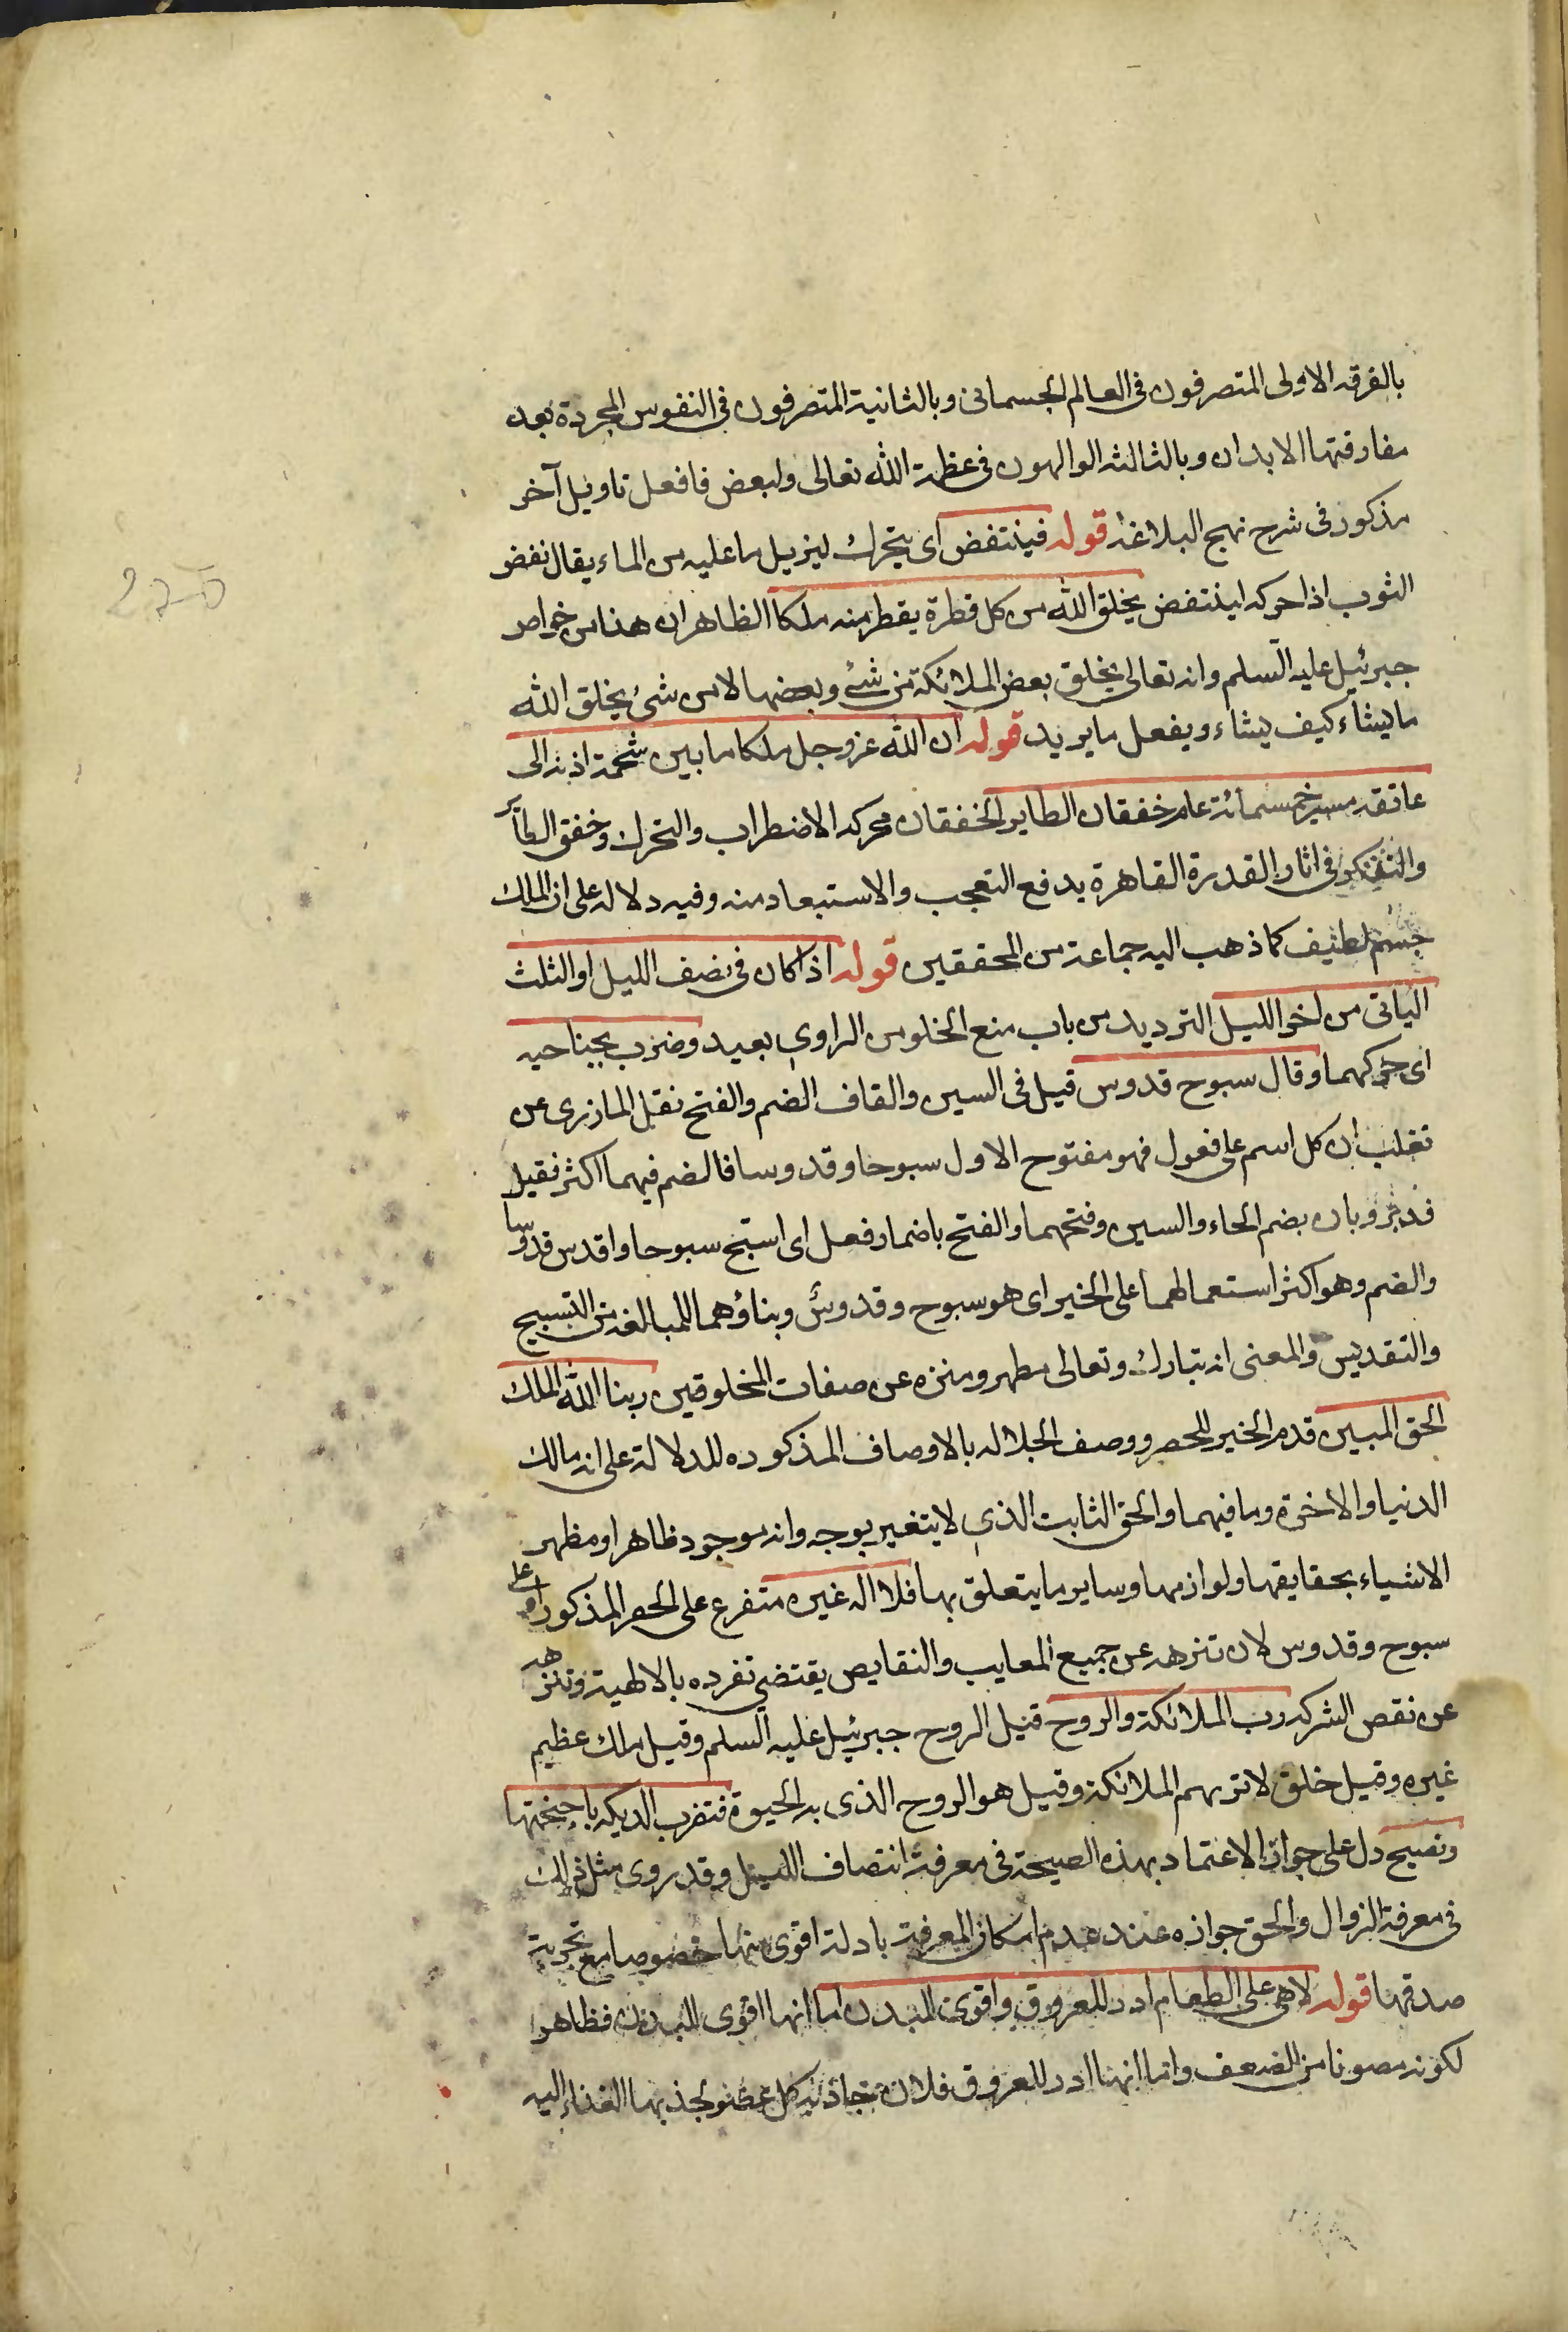 بالفرقه الاولى المتصرفون فى العالم الجسمانى وبالثانية المتصرفون فى النفوس المجردة بعد
مفارقتها الابدان وبالثالثه الوالهون فى عظمة الله تعالى ولبعض فافعل تاويل آخر
مذكور فى شرح نهج البلاغة قوله فينتفض اى يتحرك ليزيل ما عليه من الماء يقال نفض
الثوب اذا حركه لينتفض يخلق الله من كل قطرة يقطر منه ملكا الظاهر ان هذا من خواص
جبرئيل عليه السلم وانه تعالى يخلق بعض الملائكة من شئ وبعضها لا من شئ يخلق الله
ما يشاء كيف يشاء ويفعل ما يريد قوله ان الله عز وجل ملكا ما بين شحمة اذنه الى
عاتقه مسير خمسمائة عام خفقان الطاير الخفقان محركه الاضطراب والتحرك وخفق الطائر
والتفكر فى اثار القدرة القاهرة يدفع التعجب والاستبعاد منه وفيه دلاله على ان الملك
جسم لطيف كما ذهب اليه جماعة من المحققين قوله اذا كان فى نصف الليل او الثلث
الباقى من اخر الليل الترديد من باب منع الخلو من الراوى بعيد وضرب بجناحيه
اى حركهما وقال سبوح قدوس قيل فى السين والقاف الضم والفتح نقل المازرى عن
ثعلب ان كل اسم على فعول فهو مفتوح الاول سبوحا وقدوسا فالضم فيهما اكثر فقيل
قد يرويان بضم الحاء والسين وفتحهما والفتح باضمار فعل اى اسبح سبوحا واقدس قدوسا
والضم وهو اكثر استعمالهما على الخبر اى هو سبوح وقدوس وبناؤهما للمبالغة من التسبيح
والتقديس والمعنى انه تبارك وتعالى مطهر ومنزه عن صفات المخلوقين ربنا الله الملك
الحق المبين قدم الخبر للحصر ووصف الجلاله بالاوصاف المذكوره للدلالة على انه مالك
الدنيا والاخرة وما فيهما والحق الثابت الذى لا يتغير بوجه وانه موجود ظاهر او مظهر
الاشياء بحقايقها ولوازمها وساير ما يتعلق بها فلا اله غيره متفرع على الحصر المذكور او على
سبوح وقدوس لان تنزهه عن جميع المعايب والنقايص يقتضى تفرده بالالهية وتنزهه
عن نقص الشركه رب الملائكة والروح قيل الروح جبرئيل عليه السلم وقيل ملك عظيم
غيره وقيل خلق لا تريهم الملائكة وقيل هو الروح الذى به الحيوة فتضرب الديكه باجنحتها
وتصيح دل على جواز الاعتماد بهذه الصيحة فى معرفة انتصاف الليل وقد روى مثل ذلك
فى معرفة الزوال والحق جوازه عند عدم امكان المعرفة بادلة اقوى منها خصوصا مع تجربة
صدقها قوله لا هى على الطعام ادر للعروق واقوى للبدن اما انها اقوى للبدن فظاهر
لكونه مصونا من الضعف واما انها ادر للعروق فلان كل عضو لجذبها الغذاء اليه